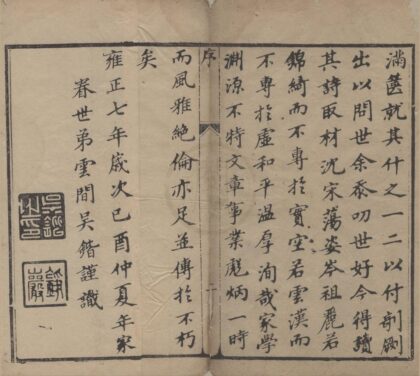 滿篋就其什之一二以付剞劂
出以問世余忝叨世好今得讀
其詩取材沈宋蕩姿岑祖麗若
錦綺而不專於實空若雲漢而
不專於虛和平溫厚洵哉家學
淵源不特文章事業彪炳一時
序
而風雅絕倫亦足並傳於不朽
矣
雍正七年歲次己酉仲夏年家
眷世弟雲間吳鍇謹識